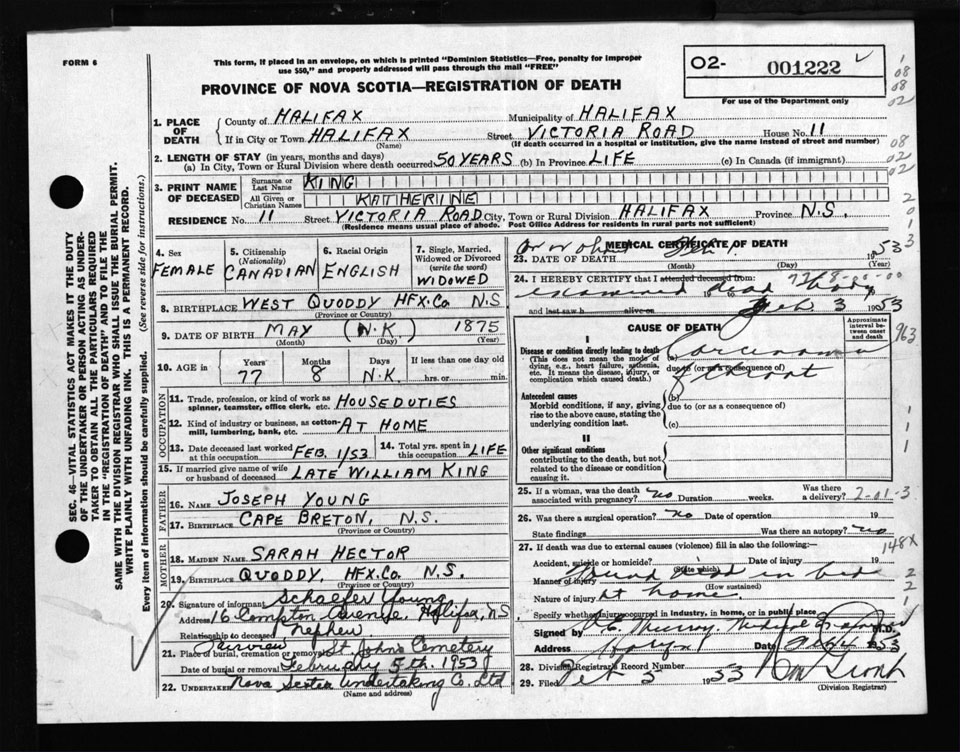 FORM 6
This form, if placed in an envelope, on which is printed "Dominion Statistics—Free, penalty for improper
use $50," and properly addressed will pass through the mail "FREE"
O2- 001222
For use of the Department only
PROVINCE OF NOVA SCOTIA—REGISTRATION OF DEATH
1. PLACE OF DEATH County of HALIFAX Municipality of HALIFAX
If in City or Town HALIFAX Street VICTORIA ROAD House No. 11
(Name) (If death occurred in a hospital or institution, give the name instead of street and number)
2. LENGTH OF STAY (in years, months and days)
(a) In City, Town or Rural Division where death occurred 50 YEARS (b) In Province LIFE (c) In Canada (if immigrant)
3. PRINT NAME OF DECEASED Surname or Last Name KING
All Given or Christian Names KATHERINE
RESIDENCE No. 11 Street VICTORIA ROAD City, Town or Rural Division HALIFAX Province N.S.
(Residence means usual place of abode. Post Office Address for residents in rural parts not sufficient)
4. Sex FEMALE
5. Citizenship (Nationality) CANADIAN
6. Racial Origin ENGLISH
7. Single, Married, Widowed or Divorced (write the word) WIDOWED
8. BIRTHPLACE WEST QUODDY HFX. Co. N.S
(Province or Country)
9. DATE OF BIRTH MAY (N.K) 1875
(Month) (Day) (Year)
10. AGE in Years 77 Months 8 Days N.K. If less than one day old hrs. or min.
OCCUPATION
11. Trade, profession, or kind of work as spinner, teamster, office clerk, etc. HOUSE DUTIES
12. Kind of industry or business, as cotton-mill, lumbering, bank, etc. AT HOME
13. Date deceased last worked at this occupation FEB. 1/53
14. Total yrs. spent in this occupation LIFE
15. If married give name of wife or husband of deceased LATE WILLIAM KING
FATHER
16. NAME JOSEPH YOUNG
17. BIRTHPLACE CAPE BRETON, N.S.
(Province or Country)
MOTHER
18. MAIDEN NAME SARAH HECTOR
19. BIRTHPLACE QUODDY, HFX. Co. N.S.
(Province or Country)
20. Signature of informant Schaefer Young
Address 16 Compton Avenue, Halifax, N.S
Relationship to deceased Nephew
21. Place of burial, cremation or removal Fairview St. John's Cemetery
Date of burial or removal February 5th. 1953
22. UNDERTAKER Nova Scotia Undertaking Co. Ltd
(Name and address)
MEDICAL CERTIFICATE OF DEATH
23. DATE OF DEATH on or about 1953
(Month) (Day) (Year)
24. I HEREBY CERTIFY that I attended deceased from:
examined dead body
and last saw h alive on Feb. 3 1953
CAUSE OF DEATH
Approximate interval between onset and death
I
Disease or condition directly leading to death (a) Carcinoma
(This does not mean the mode of dying, e.g., heart failure, asthenia, etc. It means the disease, injury, or complication which caused death.)
due to (or as a consequence of) of throat
(b)
Antecedent causes
Morbid conditions, if any, giving rise to the above cause, stating the underlying condition last.
due to (or as a consequence of)
(c)
II
Other significant conditions
contributing to the death, but not related to the disease or condition causing it.
25. If a woman, was the death associated with pregnancy? no Duration weeks. Was there a delivery?
2-01-3
26. Was there a surgical operation? no Date of operation 19
State findings Was there an autopsy? no
27. If death was due to external causes (violence) fill in also the following:—
148x
Accident, suicide or homicide? Date of injury 19
(State which)
Manner of injury Found dead in bed
(How sustained)
Nature of injury at home.
Specify whether injury occurred in industry, in home, or in public place
Signed by Murray, Medical Examiner M.D.
Address Halifax Date
28. Division Registrar's Record Number
29. Filed Feb 5 1953
(Division Registrar)
SEC. 46—VITAL STATISTICS ACT MAKES IT THE DUTY
OF THE UNDERTAKER OR PERSON ACTING AS UNDER-
TAKER TO OBTAIN ALL THE PARTICULARS REQUIRED
IN THE "REGISTRATION OF DEATH" AND TO FILE THE
SAME WITH THE DIVISION REGISTRAR WHO SHALL ISSUE THE BURIAL PERMIT.
WRITE PLAINLY WITH UNFADING INK. THIS IS A PERMANENT RECORD.
Every item of information should be carefully supplied. (See reverse side for instructions.)